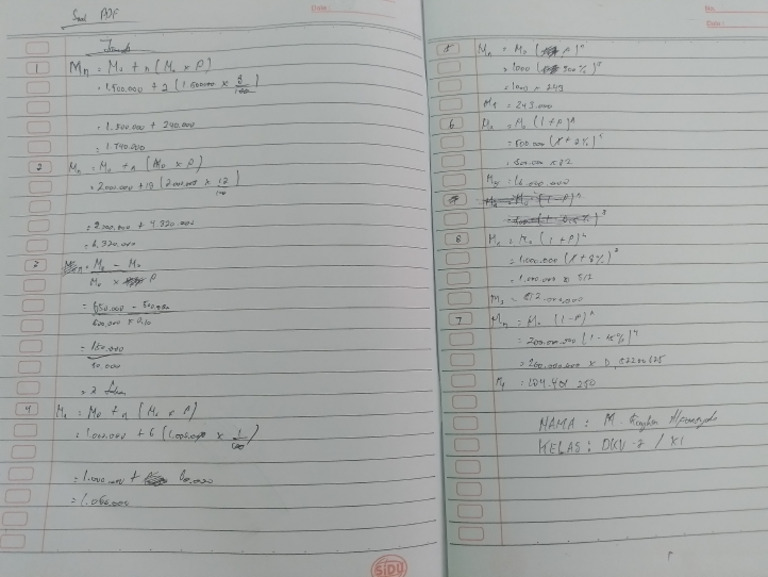 Soal PDF
Jawab
1 Mn = M0 + n (M0 x P)
= 1.500.000 + 2 (1.500000 x 8/100)
= 1.500.000 + 240.000
= 1.740.000
2 Mn = M0 + n (M0 x P)
= 2.000.000 + 18 (2.000.000 x 12/100)
= 2.000.000 + 4.320.000
= 6.320.000
3 n = Mn - M0
M0 x P
= 650.000 - 500.000
500.000 x 0,10
= 150.000
50.000
4 Mn = M0 + n (M0 x P)
= 1.000.000 + 6 (1.000.000 x 1/100)
= 1.000.000 + 60.000
= 1.060.000
5 Mn = M0 ( P)ⁿ
= 1000 ( 300%)⁵
= 1000 x 243
M5 = 243.000
6 Mn = M0 (1+P)ⁿ
= 500.000
= 500.000 x 32
= 16.000.000
8 Mn = M0 (1+P)ⁿ
= 1.000.000
= 1.000.000 x 512
= 512.000.000
7 Mn = M0 (1-P)ⁿ
= 200.000.000 (1-15%)⁴
= 200.000.000 x 0,52200625
= 104.401.250
NAMA : M.
KELAS : DKV-2 / XI
SIDU